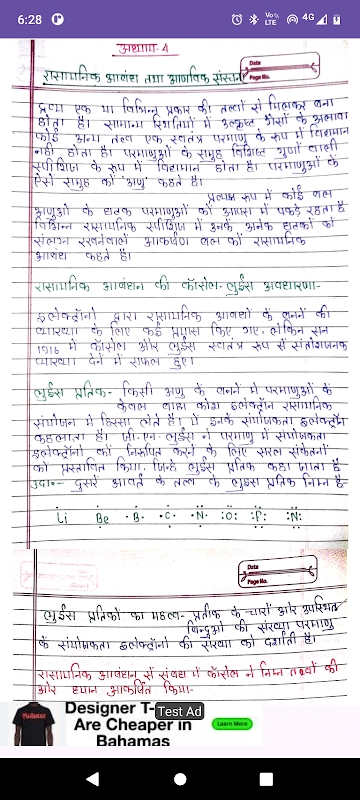 6:28
Vo))
LTE
4G
31
अध्याय-4
Date
Page No.
रासायनिक आबंध तथा आण्विक संरचना
द्रव्य एक या विभिन्न प्रकार की तत्वों से मिलकर बना
होता है। सामान्य स्थितियों में उत्कृष्ट गैसों के अलावा
कोई अन्य तत्व एक स्वतंत्र परमाणु के रूप में विद्यमान
नही होता है। परमाणुओं के समूह विशिष्ट गुणों वाली
स्पीशिज के रूप में विद्यमान होता है। परमाणुओं के
ऐसे समूह को 'अणु' कहते है।
प्रत्यक्ष रूप में कोई बल
अणुओ के घटक परमाणुओं को आपस में पकड़े रहता है
विभिन्न रासायनिक स्पीशिज में उनके अनेक घटकों को
संलग्न रखनेवाले आकर्षण बल को रासायनिक
आबंध कहते है।
रासायनिक आबंधन की कॉसेल-लुईस अवधारणा-
इलेक्ट्रॉनो द्वारा रासायनिक आबंधो के बनने की
व्याख्या के लिए कई प्रयास किए गए, लेकिन सन
1916 में कॉसेल और लुईस स्वतंत्र रूप से संतोषजनक
व्याख्या देने में सफल हुए।
लुईस प्रतिक- किसी अणु के बनने में परमाणुओं के
केवल बाह्य कोश इलेक्ट्रॉन रासायनिक
संयोजन में हिस्सा लेते है। ये इनके संयोजकता इलेक्ट्रॉन
कहलाता है। जी.एन. लुईस ने परमाणु में संयोजकता
इलेक्ट्रॉनों को निरूपित करने के लिए सरल संकेतनों
को प्रस्तावित किया, जिन्हे लुईस प्रतिक कहा जाता है
उदा०- दुसरे आवर्त के तत्व के लुइस प्रतिक निम्न है-
Li Be ·B· ·C· ·N· :O: :F: :N:
Date
Page No.
लुईस प्रतिकों का महत्व- प्रतीक के चारों ओर उपस्थित
बिन्दुओ की संख्या परमाणु
के संयोजकता इलेक्ट्रॉनों की संख्या को दर्शाती है।
रासायनिक आबंधन से संबंध में कॉसेल ने निम्न तथ्यों की
ओर ध्यान आकर्षित किया-
Designer T-
Are Cheaper in
Bahamas
Test Ad
Learn More